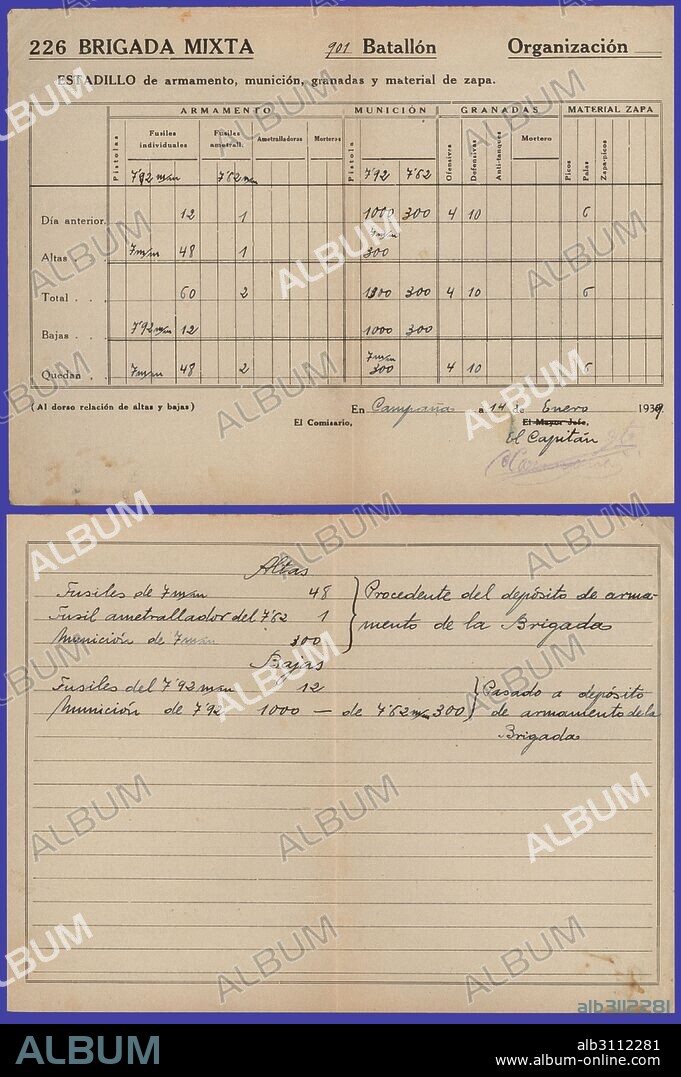 226 BRIGADA MIXTA 901 Batallón Organización
ESTADILLO de armamento, munición, granadas y material de zapa.
ARMAMENTO MUNICIÓN GRANADAS MATERIAL ZAPA
Pistolas Fusiles individuales Fusiles ametrall. Ametralladoras Morteros Pistola Ofensivas Defensivas Anti-tanques Mortero Picos Palas Zapa-picos
7'92 m/m 7'62 m/m 7'92 7'62
Día anterior. 12 1 1000 300 4 10 6
Altas . . 7 m/m 48 1 7 m/m 300
Total . . . 60 2 1300 300 4 10 6
Bajas . . . 7'92 m/m 12 1000 300
Quedan . . 7 m/m 48 2 7 m/m 300 4 10 6
(Al dorso relación de altas y bajas) En Campaña a 14 de Enero 1939
El Comisario, El Mayor Jefe,
El Capitán
Altas
Fusiles de 7 m/m 48 Procedente del depósito de arma-
Fusil ametrallador del 7'62 1 mento de la Brigada
Munición de 7 m/m 300
Bajas
Fusiles del 7'92 m/m 12 Pasado a depósito
Munición de 7'92 1000 — de 7'62 m/m 300 de armamento de la
Brigada
ALBUM
alb3112281
ALBUM
alb3112281
www.album-online.com